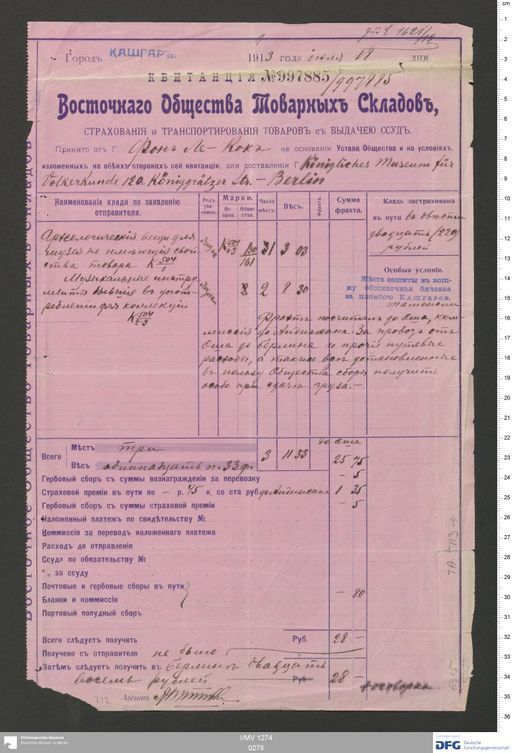 Городъ КАШГАРЪ. 1913 года июля 18 дня
КВИТАНЦІЯ №997885
997885
Восточнаго Общества Товарныхъ Складовъ,
СТРАХОВАНІЯ и ТРАНСПОРТИРОВАНІЯ ТОВАРОВЪ съ ВЫДАЧЕЮ ССУДЪ.
Принято отъ Г. Фонъ Ле-Кокъ на основаніи Устава Общества и на условіяхъ,
изложенныхъ на обѣихъ сторонахъ сей квитанціи, для доставленія Г. Königliches Museum für
Völkerkunde 120. Königgrätzer Str. - Berlin
Наименованіе клади по заявленію отправителя.
Родъ упаковки.
Марки.
Отправ.
Общества.
Число мѣстъ.
Вѣсъ.
Фрахтъ.
Сумма фрахта.
Кладь застрахована
въ пути въ двѣсти
двадцать (220)
рублей
Археологическія вещи для
музея не имѣющія свой
ства товара К 504/1
1 3 03
Музыкальные инстру
менты
реблении для коллекціи
К 504/2-3
2 8 30
Особыя условія.
Мѣста зашиты въ кош
му обшивочная бичевка
за пломбою КАШГАРСК.
таможни
Фрахтъ посчитанъ до Оша, ком
миссія до Андижана. За провозъ отъ
Оша до Берлина и прочіе путевые
расходы, а также всѣ установленные
въ пользу Общества сборы получить
особо при сдачѣ груза.-
Всего
Мѣстъ три
Вѣсъ одиннадцать п. 33 ф.
3 11 33
до Оша
25 75
Гербовый сборъ съ суммы вознагражденія за перевозку - 5
Страховой преміи въ пути по - р. 45 к. со ста руб. до Андижана 1 35
Гербовый сборъ съ суммы страховой преміи - 5
Наложенный платежъ по свидѣтельству №
Комиссія за переводъ наложеннаго платежа
Расходъ до отправленія
Ссуда по обязательству №
% за ссуду
Почтовые и гербовые сборы въ пути
Бланки и коммиссія
- 80
Портовый попудный сборъ
Всего слѣдуетъ получить Руб. 28 -
Получено съ отправителя не было
Затѣмъ слѣдуетъ получить въ Берлинѣ двадцать
восемь рублей Руб. 28 -
Агентъ
212
7A 7113-4
Ethnologisches Museum
Staatliche Museen zu Berlin
I/MV 1274
0275
Gefördert durch
DFG Deutsche
Forschungsgemeinschaft